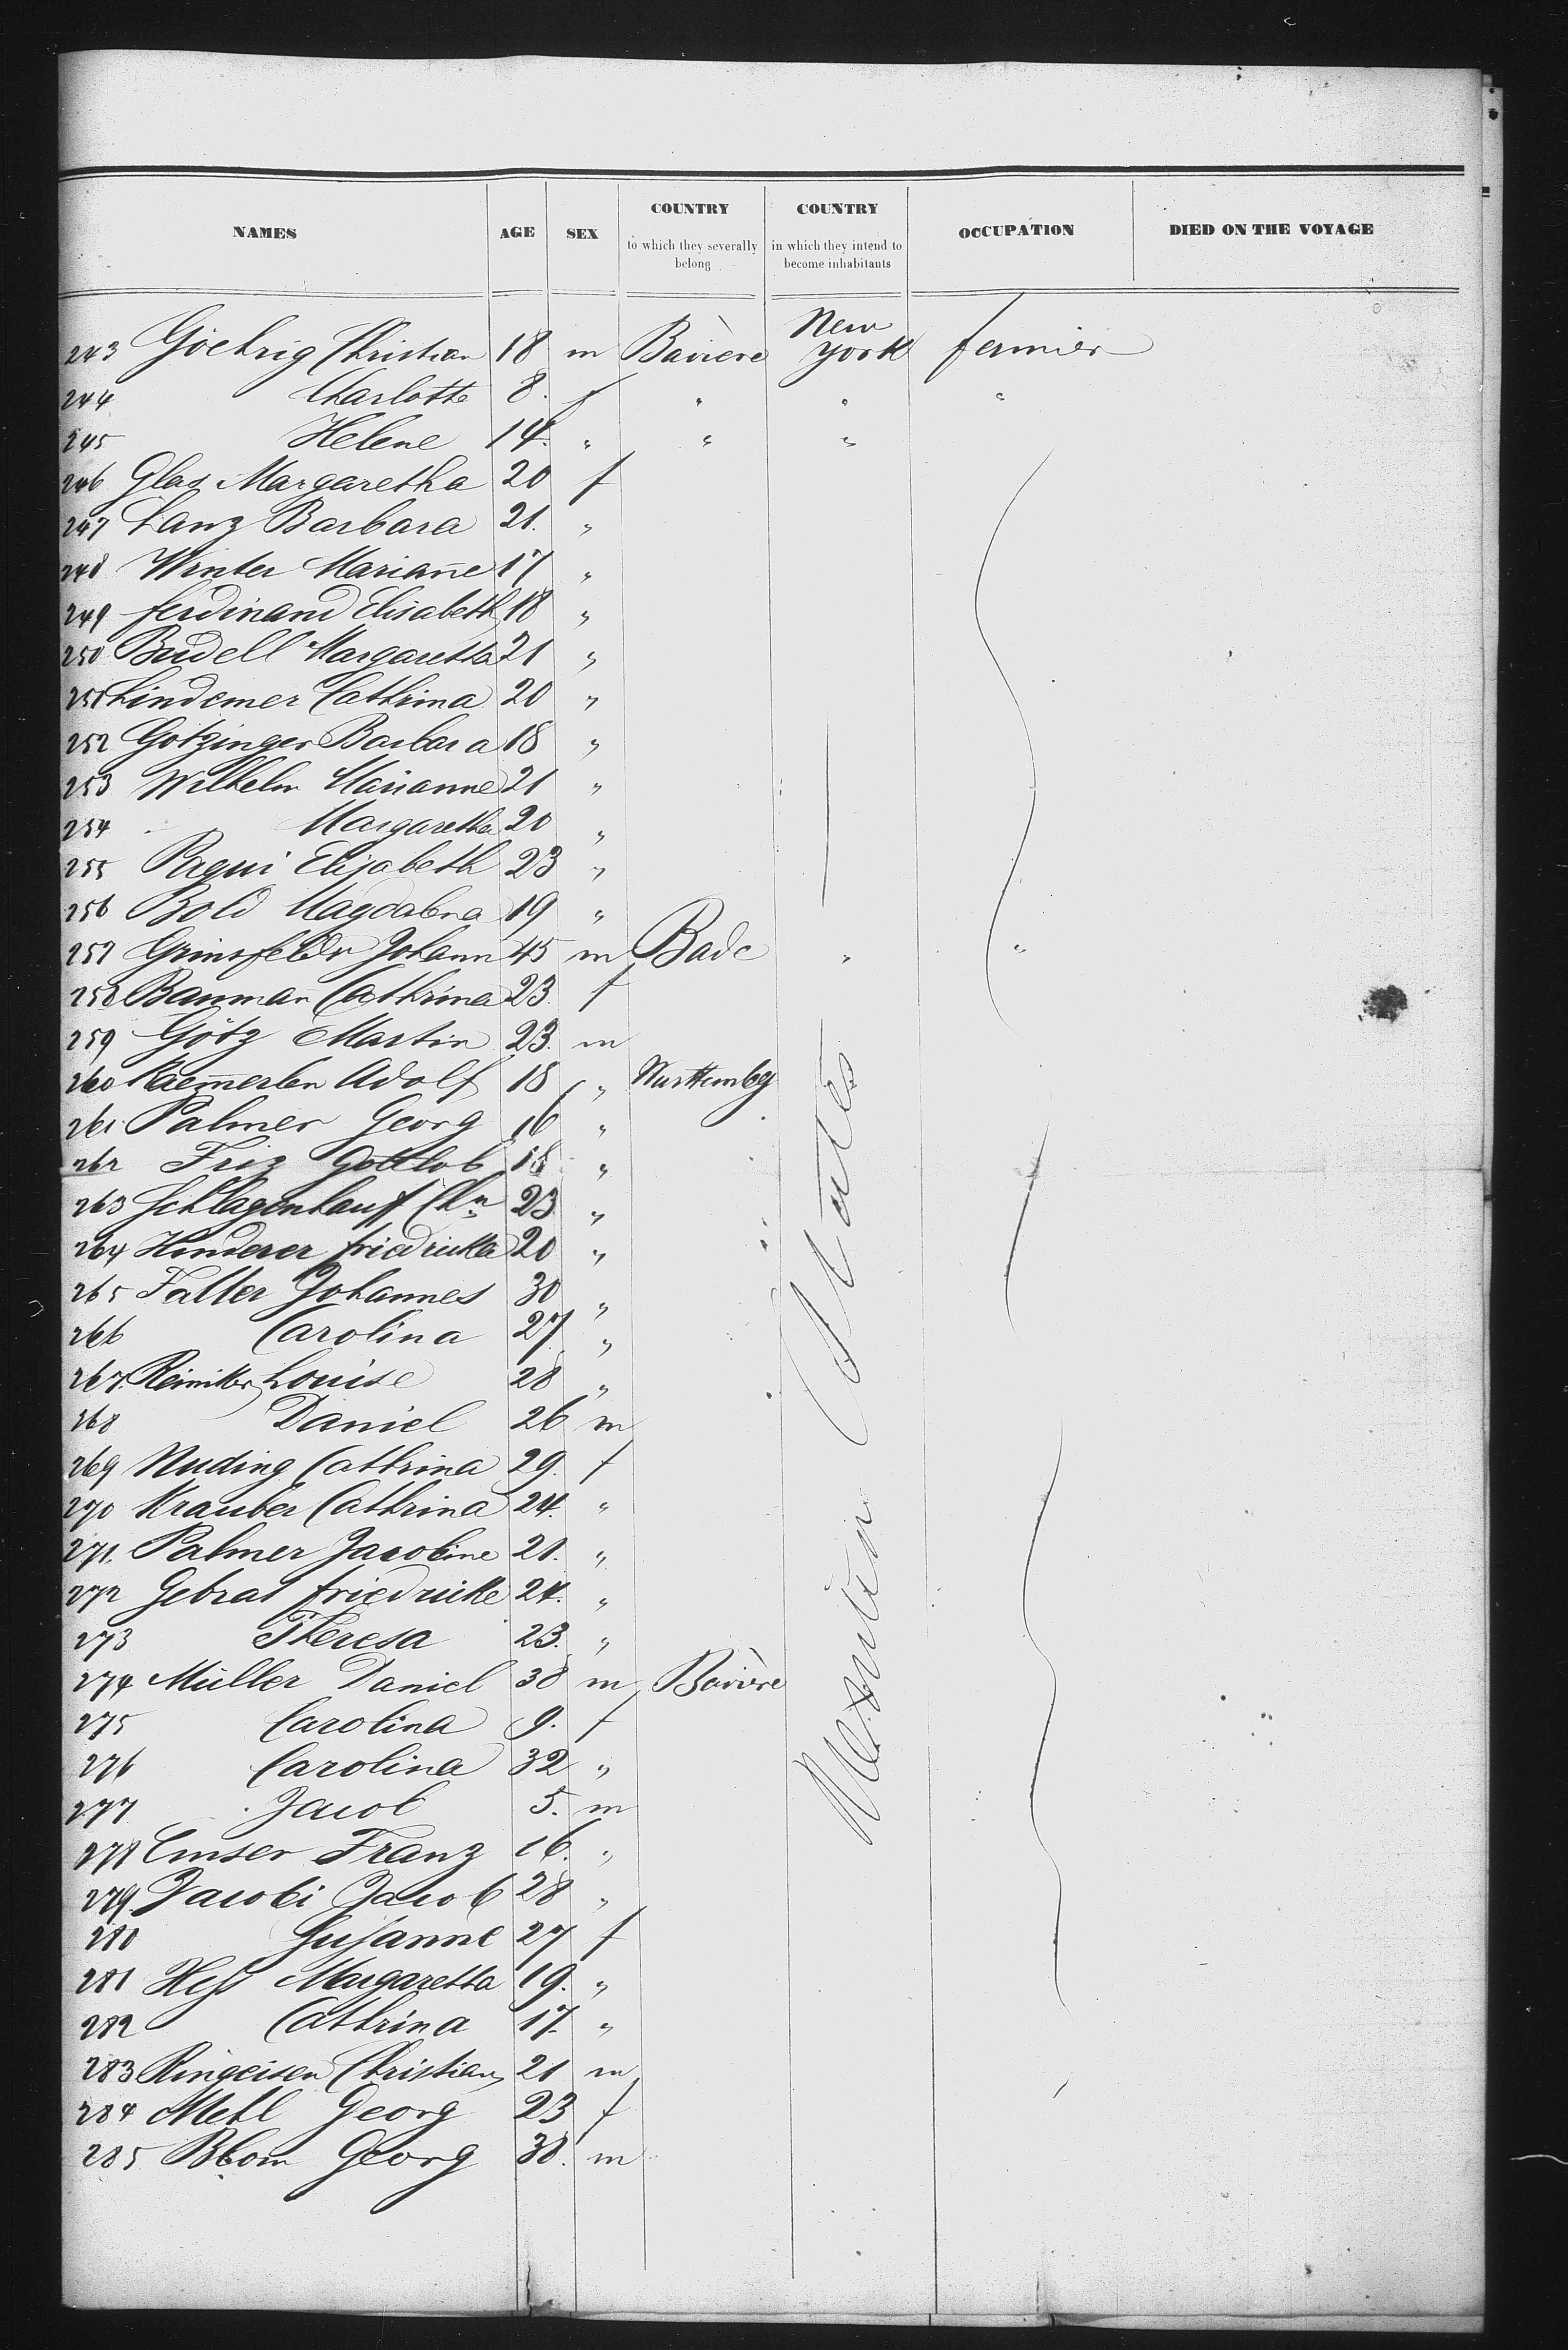 NAMES AGE SEX COUNTRY to which they severally belong COUNTRY in which they intend to become inhabitants OCCUPATION DIED ON THE VOYAGE
243 Goehrig Christian 18 m Bavière New York fermier
244 Charlotte 8. f " " "
245 Helene 14. " " "
246 Glas Margaretha 20 f
247 Lanz Barbara 21. "
248 Winter Mariañe 17 "
249 ferdinand Elisabeth 18 "
250 Budell Margaretha 21 "
251 Lindemer Cathrina 20 "
252 Götzinger Barbara 18 "
253 Wilhelm Marianne 21 "
254 Margaretha 20 "
255 Paqui Elisabeth 23 "
256 Bold Magdalena 19 "
257 Grinsfelder Johann 45 m Bade " "
258 Bauman̄ Cathrina 23. f
259 Götz Martin 23. m
260 Adolf 18 " Wurttembg
261 Palmer Georg 16 "
262 Friz Gottlob 18 "
263 Schlagenhauf Chn 23 "
264 Hinderer friedricka 20 "
265 Faller Johannes 30 "
266 Carolina 27 "
267. Louise 28 "
268 Daniel 26 m
269 Nuding Cathrina 29. f
270 Krauber Cathrina 24. "
271. Palmer Jacobine 21. "
272 Gebrat friedricke 24. "
273 Theresa 23. "
274 Müller Daniel 38 m Bavière
275 Carolina 9. f
276 Carolina 32 "
277 Jacob 5. m
278 Emser Franz 16. "
279. Jacobi Jacob 28 "
280 Susanne 27 f
281 Hess Margaretha 19. "
282 Cathrina 17. "
283 Ringeisen Christian 21 m
284 Mehl Georg 23 f
285 Blom Georg 38. m
States